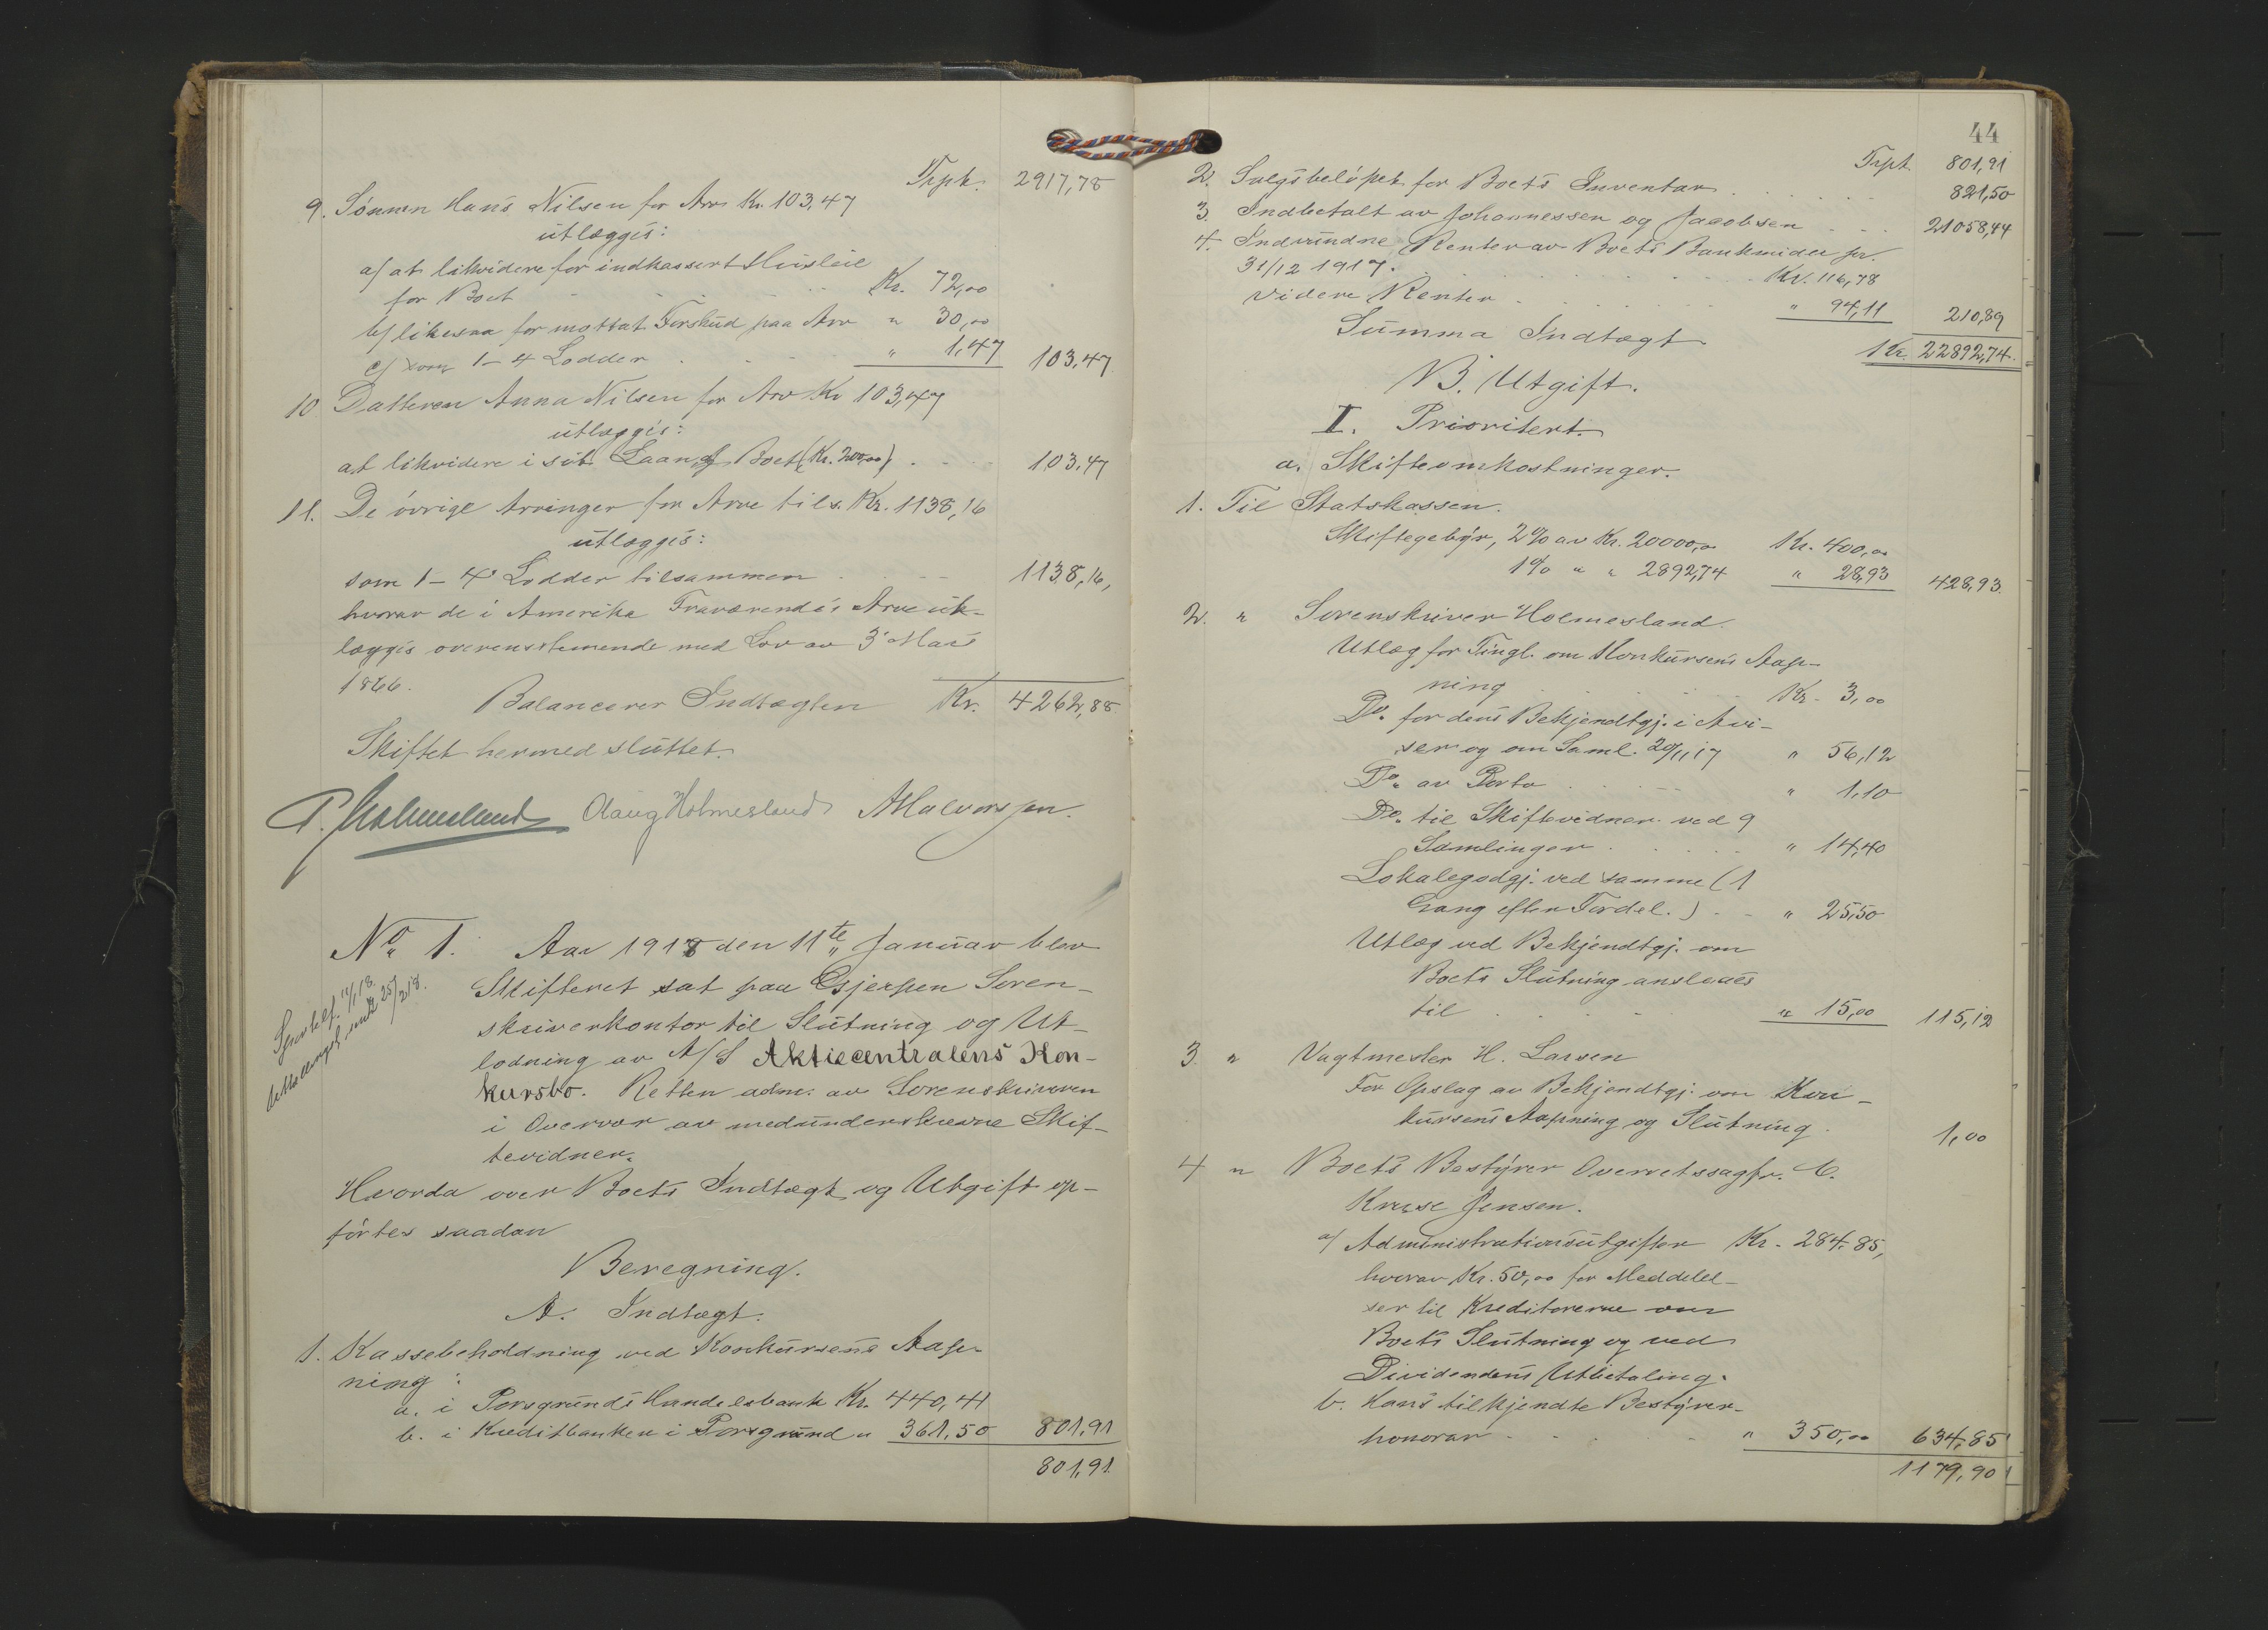 Trpt. 2917,78
9. Sønnen Hans Nilsen for Arv Kr. 103,47
utlægges:
a/ at likvidere for indkassert Husleie
for Boet Kr. 72,00
b/ likesaa for mottat Forskud paa Arv " 30,00
c/ som 1-4 Lodder " 1,47 103,47
10. Datteren Anna Nilsen for Arv Kr 103,47
utlægges:
at likvidere i sit Laan af Boet (Kr. 200,00) 103,47
11. De øvrige Arvinger for Arve tils. Kr. 1138,16
utlægges:
som 1-4 Lodder tilsammen 1138,16,
hvorav de i Amerika Fraværendes Arve ut-
lægges overensstemmende med Lov av 3' Mars
1866.
Balancerer Indtægten Kr. 4262,88
Skiftet hermed sluttet.
P. Holmesland Aaug Holmesland A Halvorsen.
No 1. Aar 1918 den 11te Januar blev
Skifteret sat paa Gjerpen Soren-
skriverkontor til Slutning og Ut-
lodning av A/S Aktiecentralens Kon-
kursbo. Retten adm. av Sorenskriveren
i Overvær av medunderskrevne Skif-
tevidner.
11/1 18.
25/2 18.
Hvorda over Boets Indtægt og Utgift op-
førtes saadan
Beregning.
A. Indtægt.
1. Kassebeholdning ved Konkursens Aap-
ning:
a. i Porsgrunds Handelsbank Kr. 440,41
b. i Kreditbanken i Porsgrund " 361,50 801,91
801,91
44
Trpt. 801,91
2. Salgsbeløpet for Boets Inventar 821,50
3. Indbetalt av Johannessen og Jacobsen 21058,44
4. Indvundne Renter av Boets Bankmidler pr.
31/12 1917. Kr. 116,78
videre Renter " 94,11 210,89
Summa Indtægt Kr. 22892,74.
B. Utgift.
I. Prioritert.
a. Skifteomkostninger.
1. Til Statskassen.
Skiftegebyr, 2% av Kr. 20000,00 Kr. 400,00
1% " " 2892,74 " 28,93 428,93.
2. " Sorenskriver Holmesland.
Utlæg for Tingl. om Konkursens Aap-
ning Kr. 3,00
Do. for dens Bekjendtgj. i Avi-
ser og om Saml. 20/11 17 " 56,12
Do. av Porto " 1,10
Do. til Skiftevidner ved 9
Samlinger " 14,40
Lokalegodgj. ved samme (1
Gang efter Fordel.) " 25,50
Utlæg ved Bekjendtgj. om
Boets Slutning anslaaes
til " 15,00 115,12
3. " Vagtmester H. Larsen
For Opslag av Bekjendtgj. om Kon-
kursens Aapning og Slutning. 1,00
4 " Boets Bestyrer Overretssagfr. C.
Kruse Jensen.
a/ Administrationsutgifter Kr. 284,85,
hvorav Kr. 50,00 for Meddelel-
ser til Kreditorerne om
Boets Slutning og ved
Dividendens Utbetaling.
b. Hans tilkjendte Bestyrer-
honorar " 350,00 634,85
1179,90